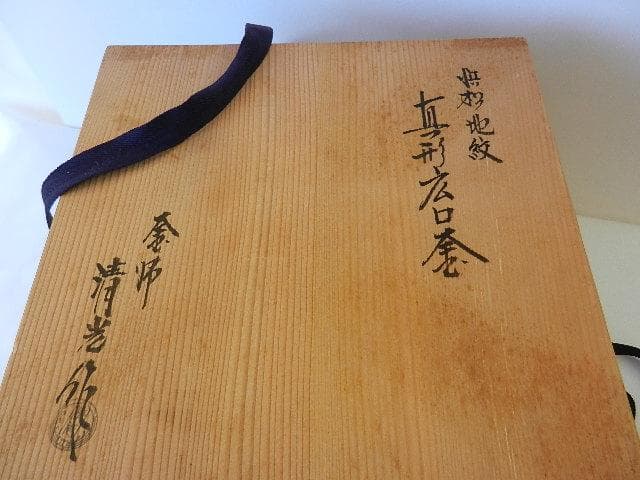 浜松地紋
真形広口釜
釜師
清光作